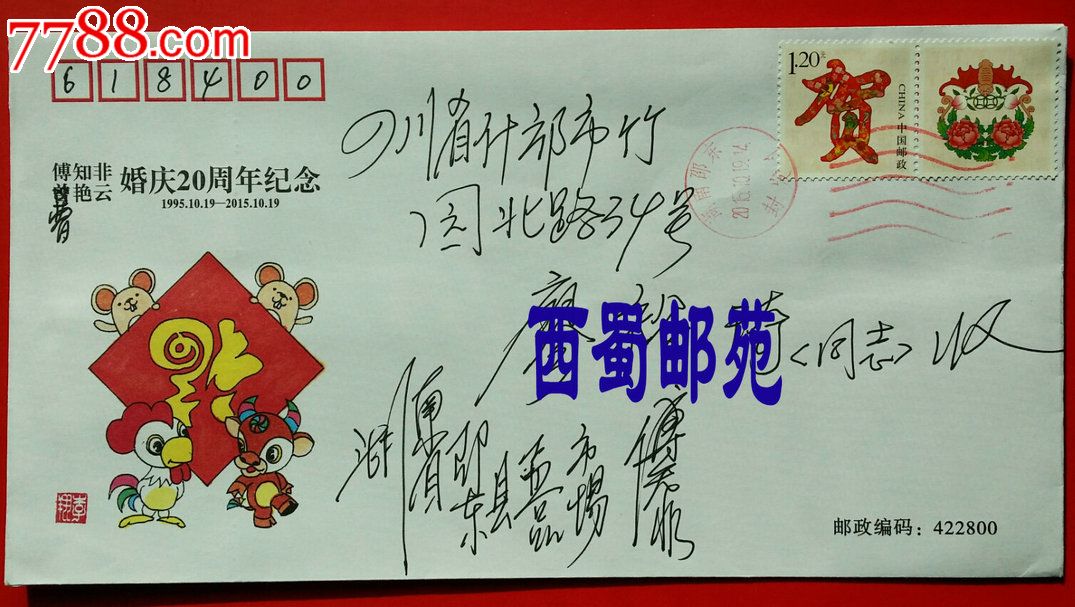 7788.com
618400
1.20元
贺
CHINA 中国邮政
四川省什邡市竹
园北路34号
傅知非
曾艳云
曾
婚庆20周年纪念
1995.10.19—2015.10.19
廖
(同志)收
西蜀邮苑
福
湖南省邵东县
市场
傅
邮政编码：422800